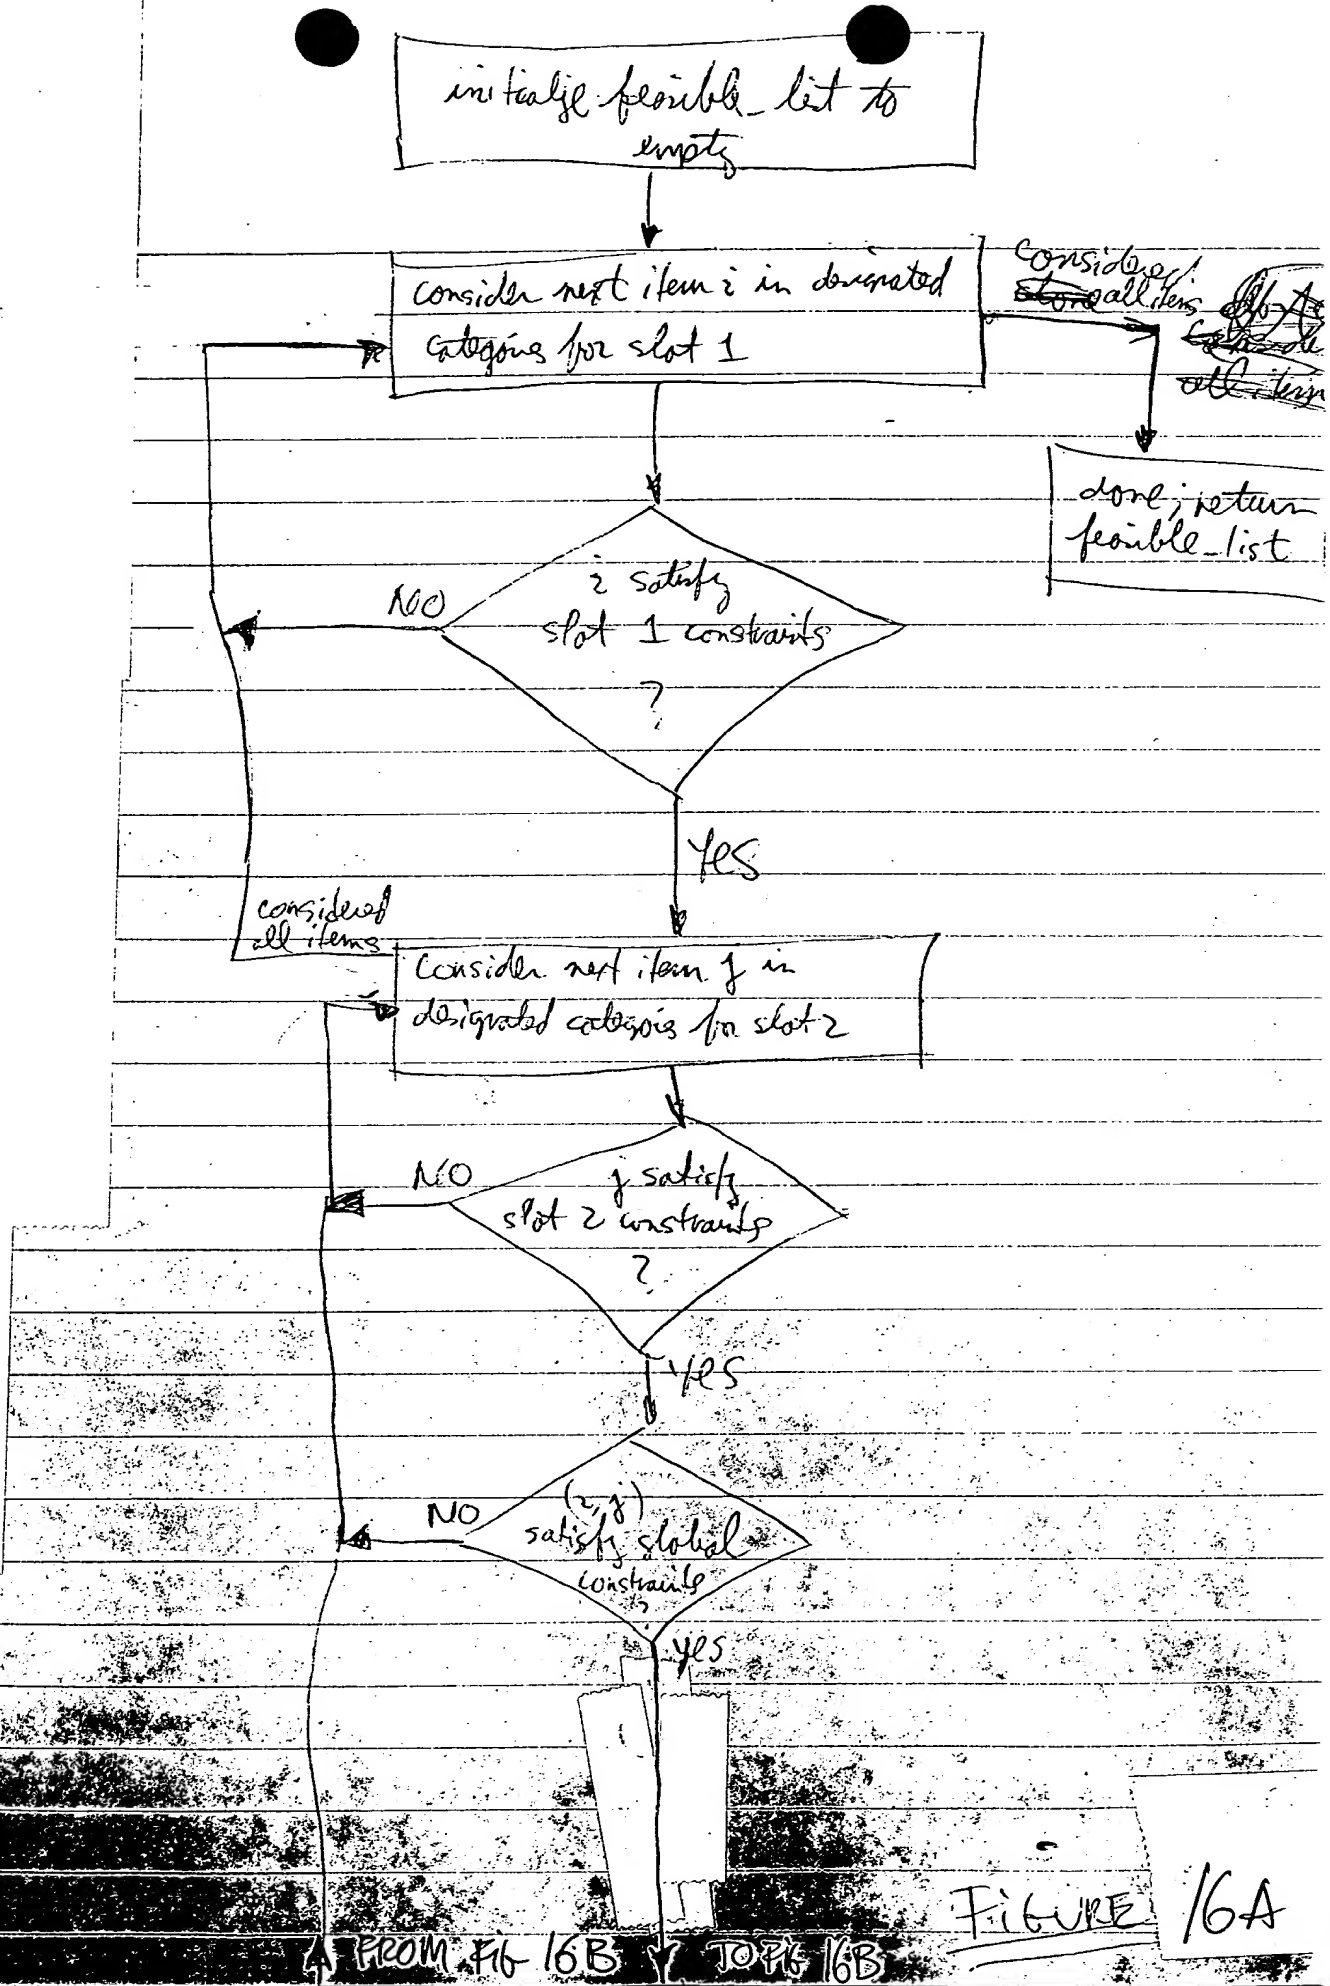 initialize feasible_list to
empty
consider next item i in designated
categories for slot 1
considered
all items
done; return
feasible_list
i satisfy
slot 1 constraints
?
NO
YES
considered
all items
consider next item j in
designated categories for slot 2
NO
j satisfy
slot 2 constraints
?
YES
NO
(i, j)
satisfy global
constraints
?
YES
FIGURE 16A
FROM FIG 16B
TO FIG 16B